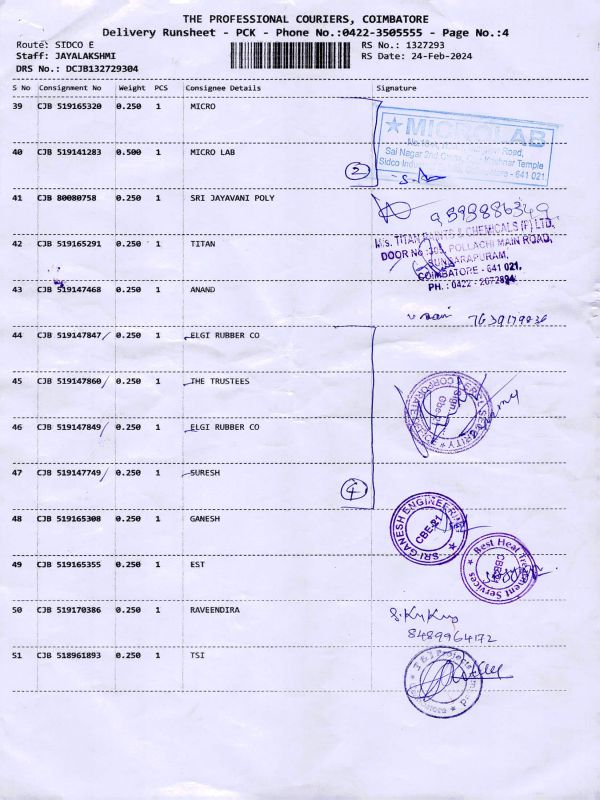 THE PROFESSIONAL COURIERS, COIMBATORE
Delivery Runsheet - PCK - Phone No.:0422-3505555 - Page No.:4
Route: SIDCO E RS No.: 1327293
Staff: JAYALAKSHMI RS Date: 24-Feb-2024
DRS No.: DCJB132729304
S No Consignment No Weight PCS Consignee Details Signature
39 CJB 519165320 0.250 1 MICRO
★ MICROLAB
Sai Nagar 2nd Krishnar Temple
Sidco Coimbatore - 641 021
40 CJB 519141283 0.500 1 MICRO LAB
2
41 CJB 80080758 0.250 1 SRI JAYAVANI POLY
M/s. TITAN PAINTS & CHEMICALS (P) LTD,
DOOR No POLLACHI MAIN ROAD,
SUNDARAPURAM,
COIMBATORE - 641 021.
PH. : 0422 - 2672894
42 CJB 519165291 0.250 1 TITAN
43 CJB 519147468 0.250 1 ANAND
44 CJB 519147847 0.250 1 ELGI RUBBER CO
45 CJB 519147860 0.250 1 THE TRUSTEES
46 CJB 519147849 0.250 1 ELGI RUBBER CO
47 CJB 519147749 0.250 1 SURESH
4
48 CJB 519165308 0.250 1 GANESH
SRI GANESH ENGINEERING
CBE-21
49 CJB 519165355 0.250 1 EST
Best Heat Treatment Services
50 CJB 519170386 0.250 1 RAVEENDIRA
8489964172
51 CJB 518961893 0.250 1 TSI